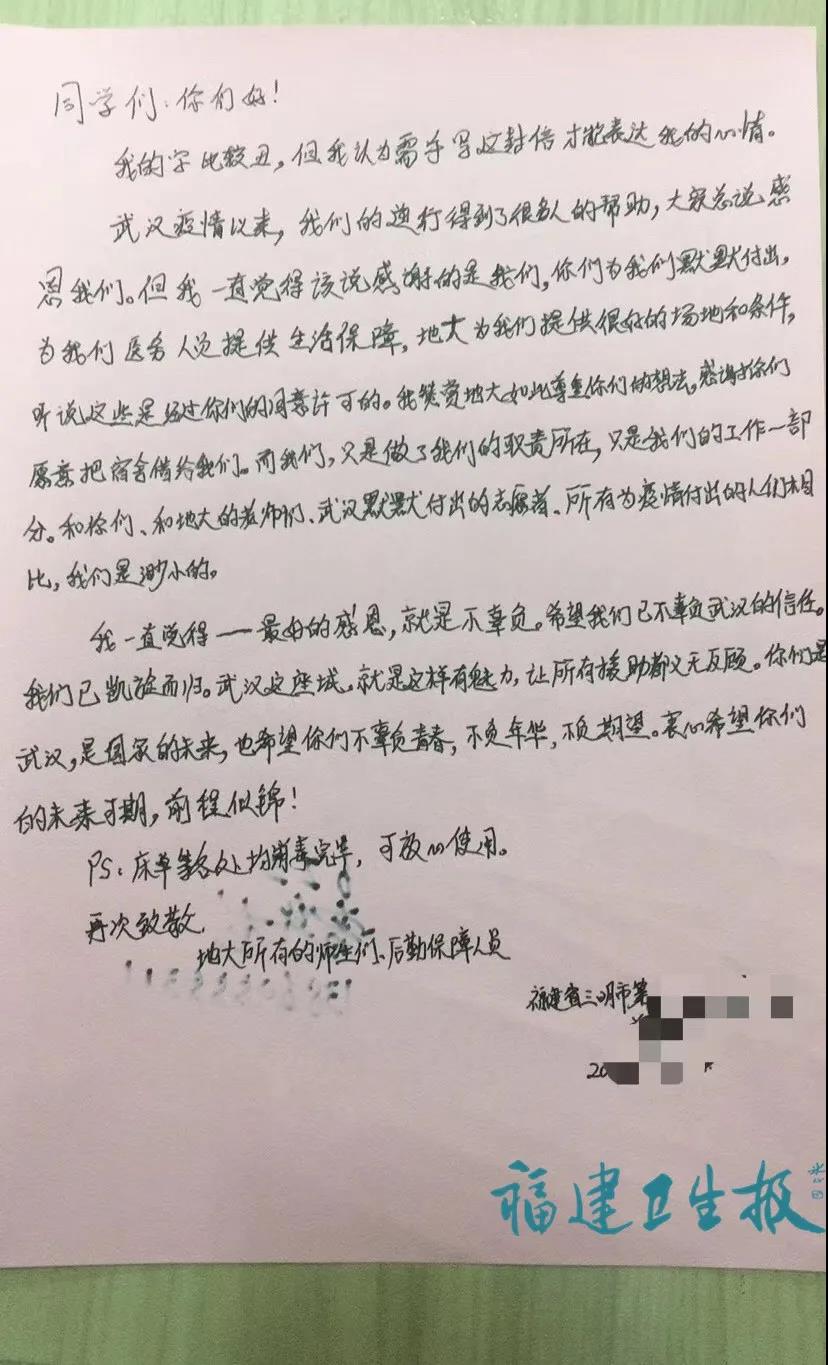 同学们：你们好！
我的字比较丑，但我认为需手写这封信才能表达我的心情。
武汉疫情以来，我们的逆行得到了很多人的帮助，大家总说感
恩我们。但我一直觉得该说感谢的是我们，你们为我们默默付出，
为我们医务人员提供生活保障，地大为我们提供很好的场地和条件，
听说这些是经过你们的同意许可的。我赞赏地大如此尊重你们的想法。感谢你们
愿意把宿舍借给我们。而我们，只是做了我们的职责所在，只是我们的工作一部
分。和你们、和地大的教师们、武汉默默付出的志愿者、所有为疫情付出的人们相
比，我们是渺小的。
我一直觉得——最好的感恩，就是不辜负。希望我们已不辜负武汉的信任。
我们已凯旋而归。武汉这座城，就是这样有魅力，让所有援助都义无反顾。你们是
武汉，是国家的未来，也希望你们不辜负青春，不负年华，不负期望。衷心希望你们
的未来可期，前程似锦！
PS：床单等各处均消毒完毕，可放心使用。
再次致敬，
地大所有的师生们、后勤保障人员
福建省三明市第
20
福建卫生报